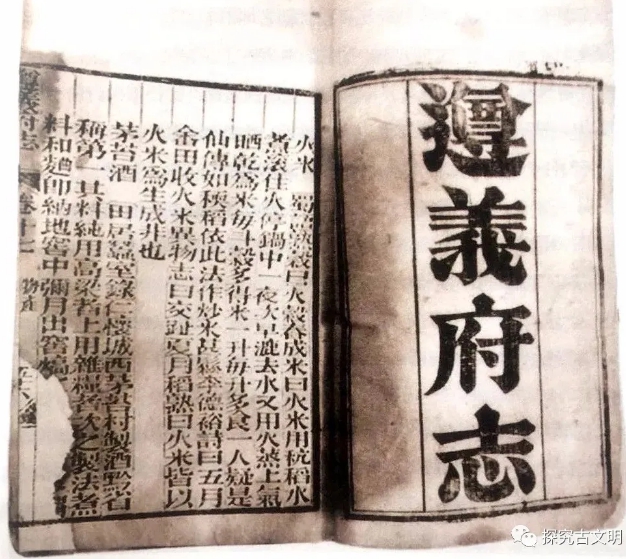 遵義府志
火米 蜀 熟穀曰火穀舂成米曰火米用秔稻水
煮滾住火停鍋中一夜次早漉去水又用火蒸上氣
晒乾為米每斗穀多得米一升每升多食一人疑是
仙傳如梗稻依此法作炒米甚 李德裕詩曰五月
畬田收火米異物志曰交趾夏月稻熟曰火米皆以
火米為生成非也
茅苔酒 田居蠶室錄仁懷城西茅苔村製酒黔省
稱第一其料純用高粱者上用雜糧者次之製法煮
料和麴即納地窖中彌月出窖
遵義府志 卷十七 物產
探究古文明